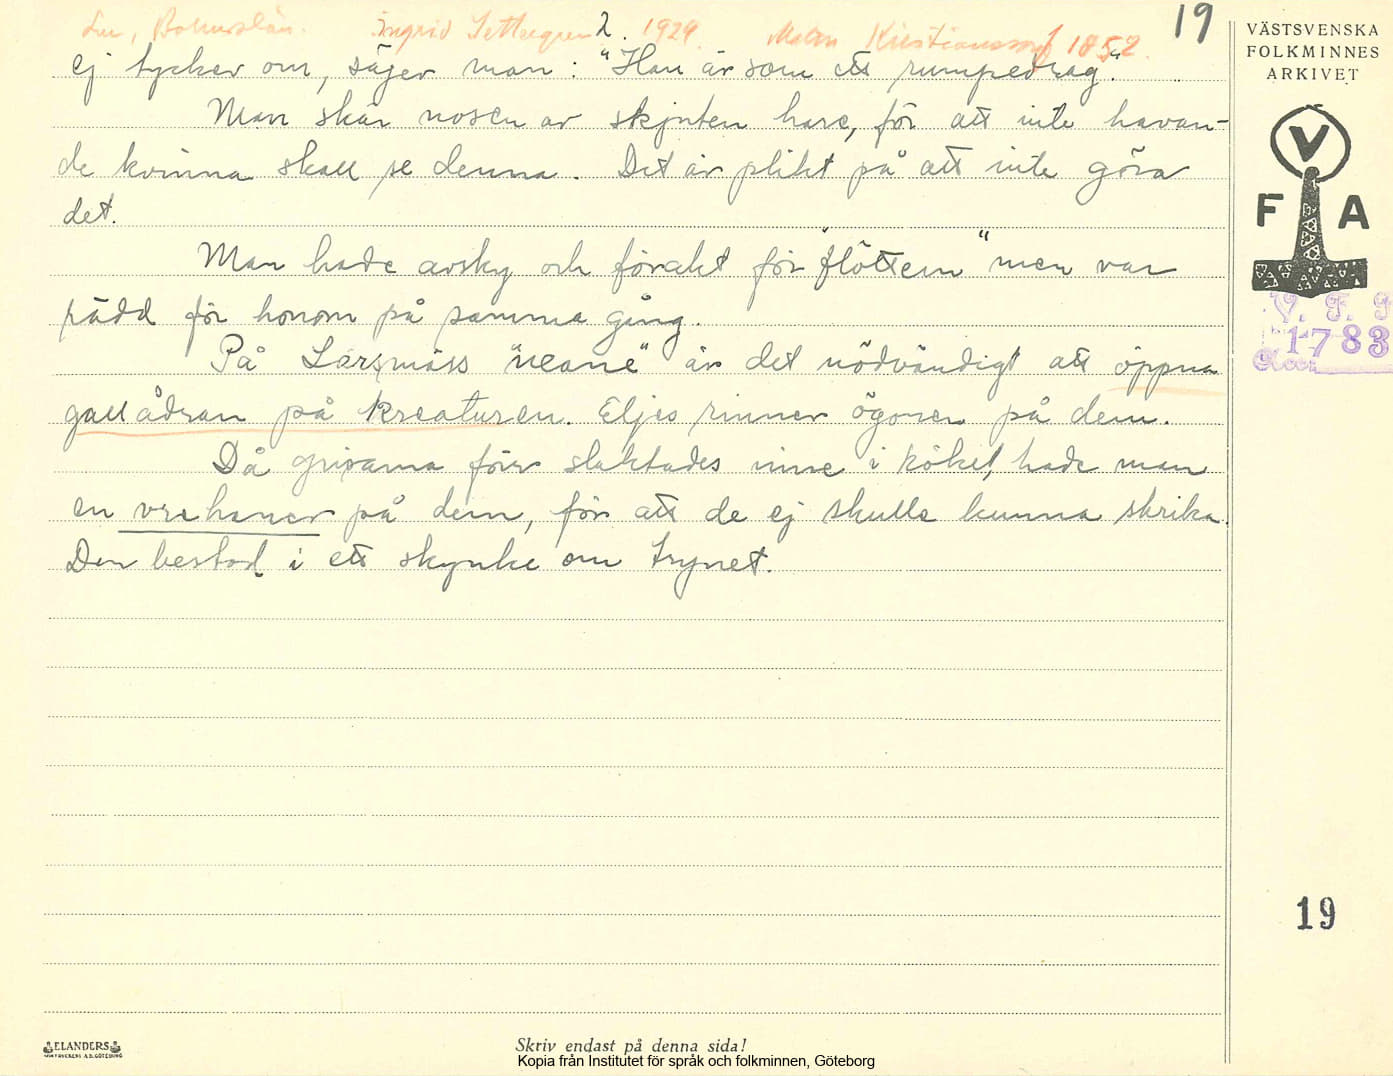 Lur, Bohuslän. Ingrid Settergren 2. 1929. Malin Kristiansson f 1852. 19
ej tycker om, säjer man: "Han är som ett rumpedrag".
Man skär nosen av skjuten hare, för att inte havan-
de kvinna skall se denna. Det är plikt på att inte göra
det.
Man hade avsky och förakt för "flöttern" men var
rädd för honom på samma gång.
På Larsmäss "neane" är det nödvändigt att öppna
gallådran på kreaturen. Eljes rinner ögonen på dem.
Då grisarna förr slaktades inne i köket, hade man
en på dem, för att de ej skulle kunna skrika.
Den bestod i ett skynke om trynet.
VÄSTSVENSKA
FOLKMINNES
ARKIVET
V
F A
V. F. F
1783
Acc.
19
ELANDERS
Skriv endast på denna sida!
Kopia från Institutet för språk och folkminnen, Göteborg